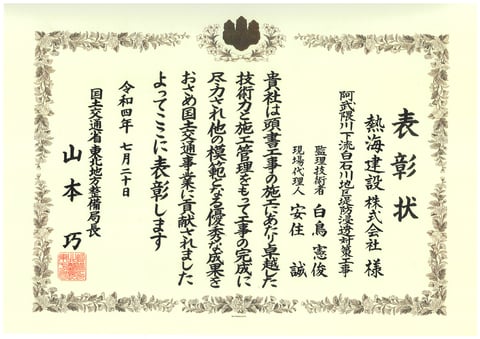 表彰状
熱海建設 株式会社 様
阿武隈川下流白石川地区堤防浸透対策工事
監理技術者 白鳥 憲俊
現場代理人 安住 誠
貴社は頭書工事の施工にあたり卓越した
技術力と施工管理をもって工事の完成に
尽力され他の模範となる優秀な成果を
おさめ国土交通事業に貢献されました
よってここに表彰します
令和四年 七月二十日
国土交通省東北地方整備局長
山本 巧